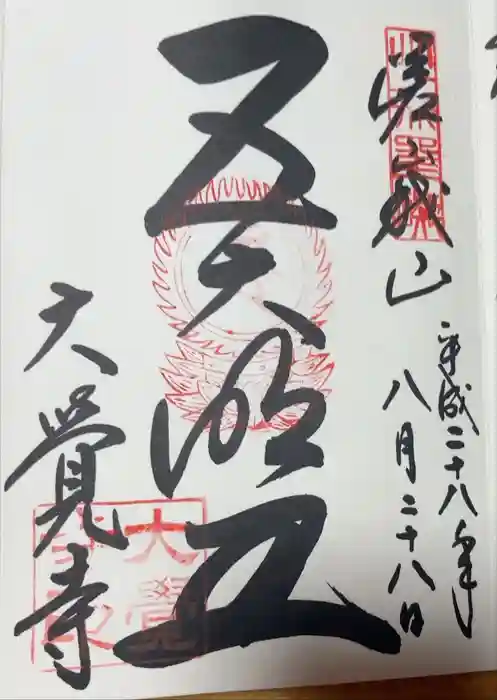 嵯峨山
平成二十八年
八月二十八日
五大明王
大覺寺
大覺